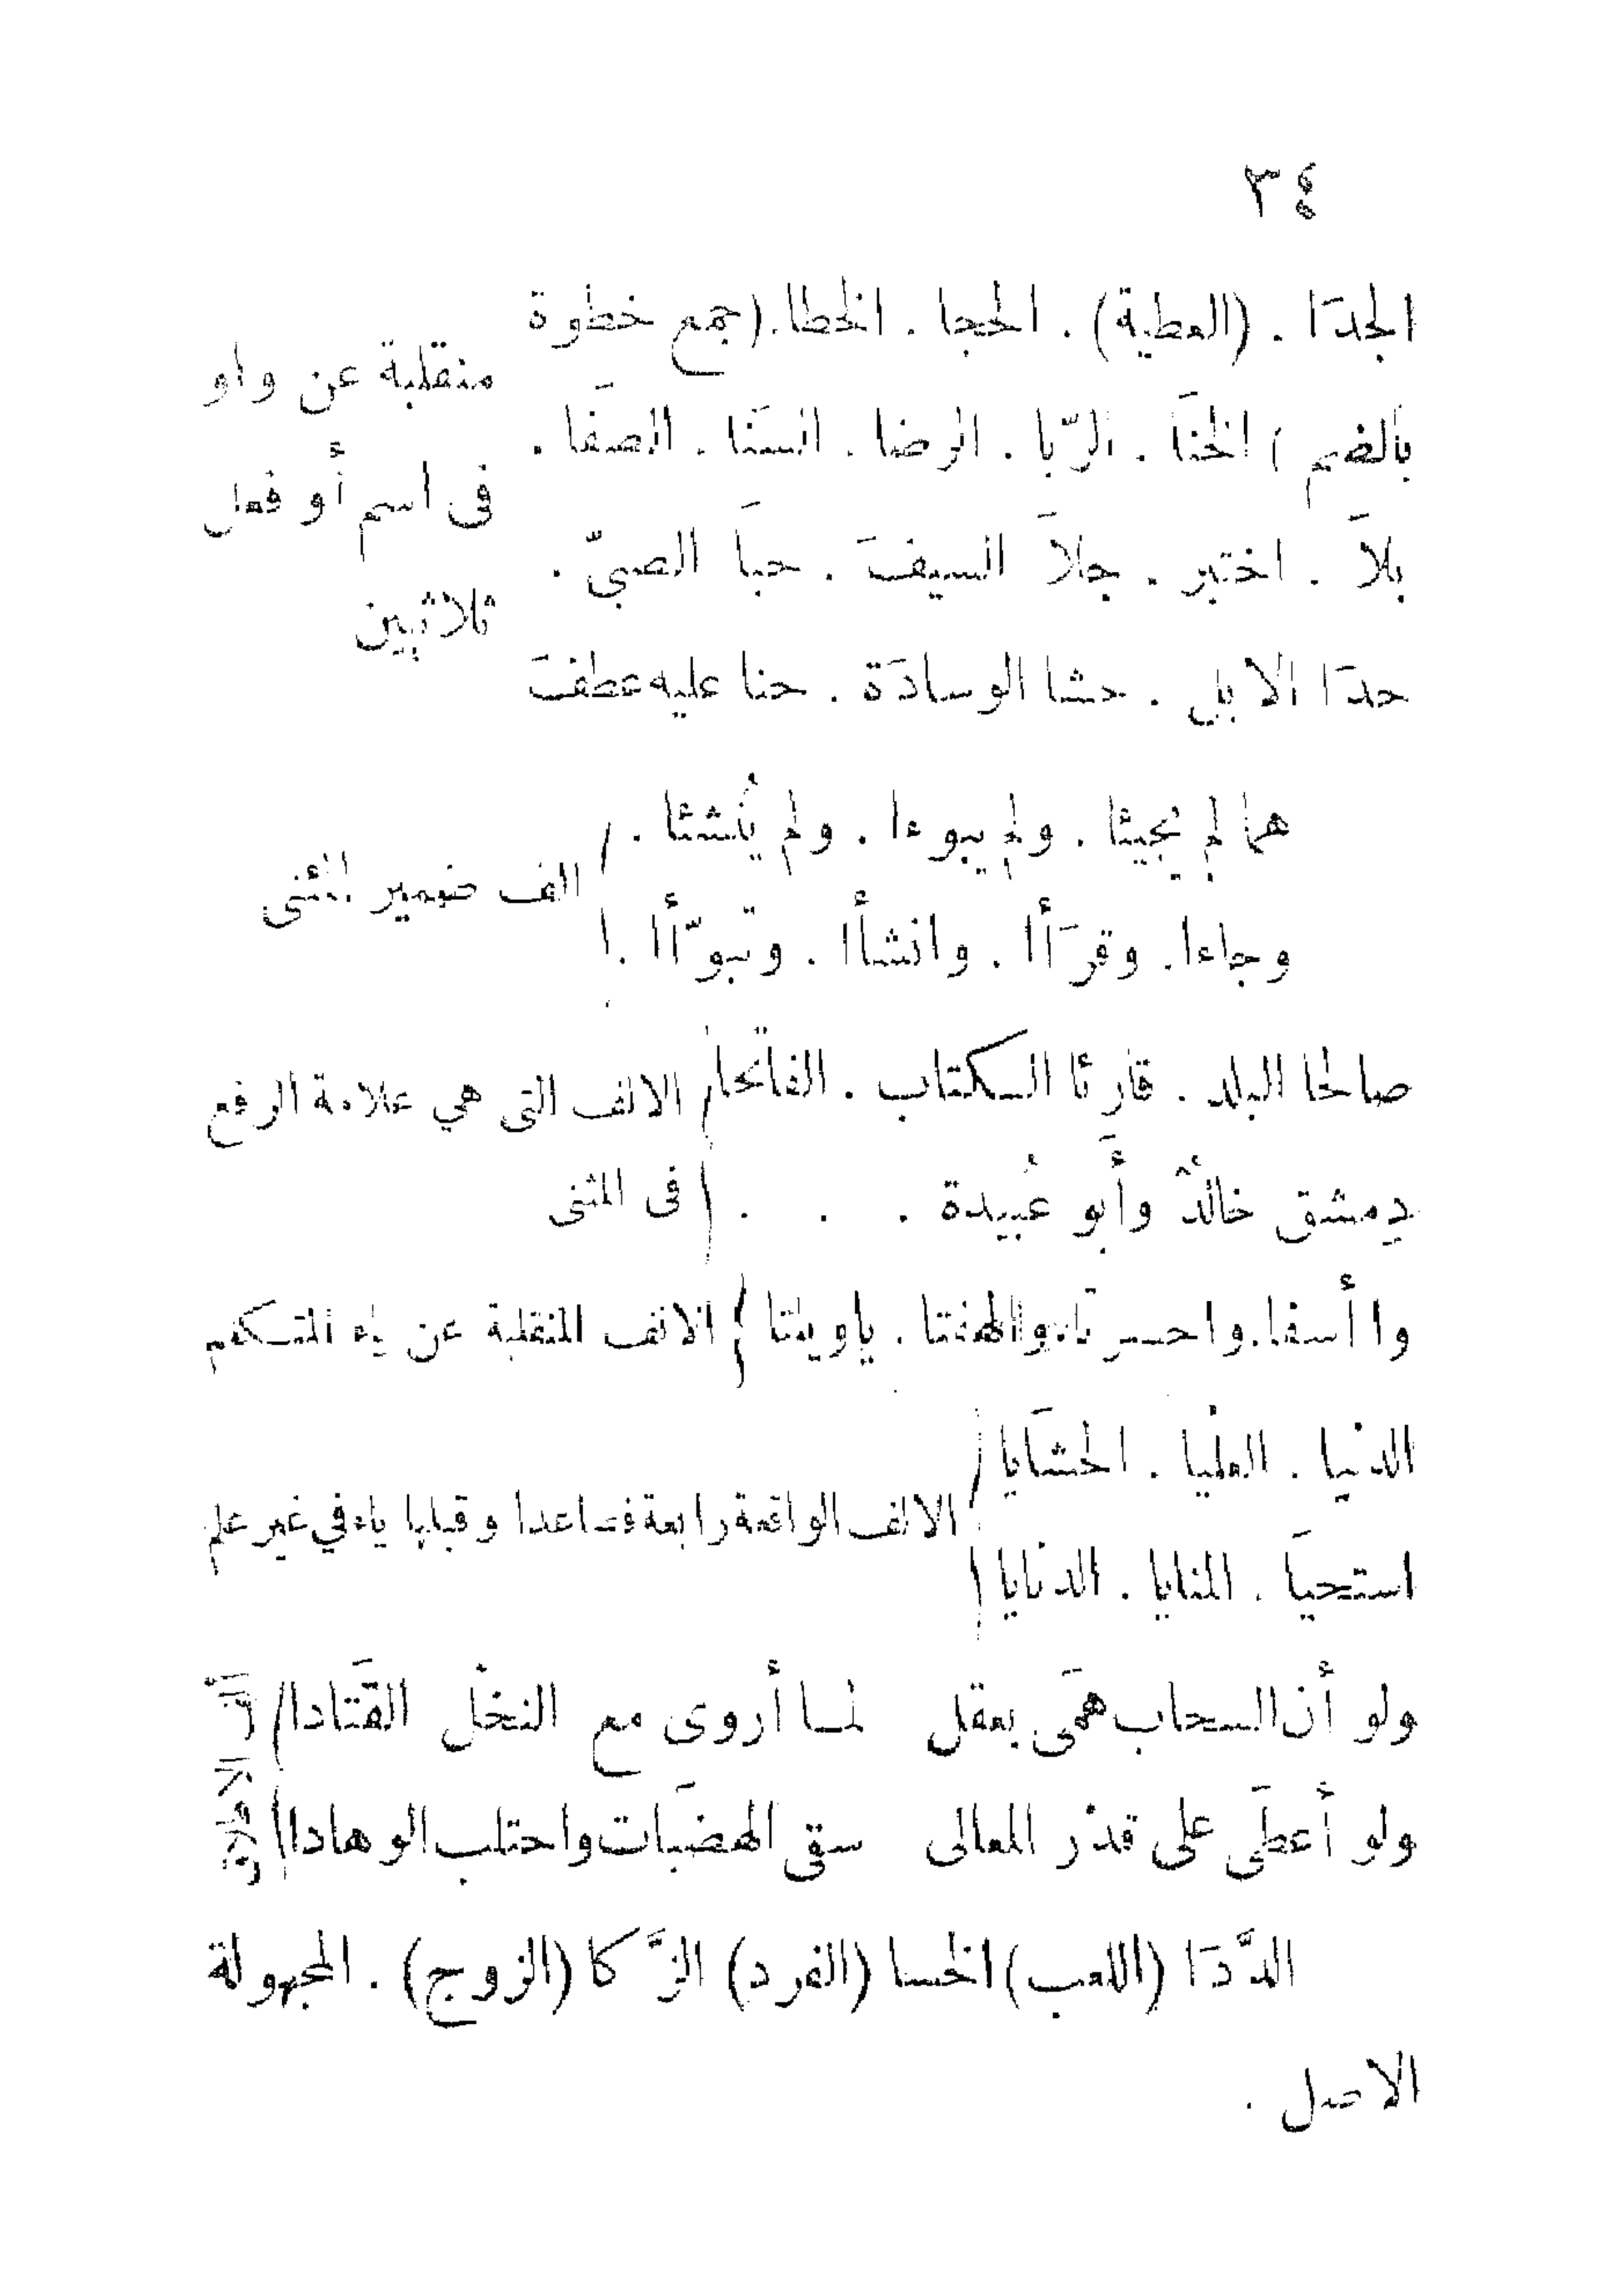 ٣٤
الجدَا . (العطية) . الحجا . الخطا . (جمع خطوة
بالضم ) الخنَا . الرّبا . الرضا . السنَا . الصفَا .
بلاَ . اختبر . جلاَ السيفَ . حبَا الصبيّ .
حدَا الابل . حشا الوسادَة . حنا عليه عطفَ
منقلبة عن واو
فى اسم أو فعل
ثلاثيين
هما لم يجيئا . ولم يبوءا . ولم يُنشئا .
وجاءا . وقرَأا . وانشأا . وتبوّأا .
الف ضمير المثنى
صالحا البلد . قارئا الكتاب . الفاتحا
دِمشق خالدٌ وأَبو عُبيدة . . .
الالف التى هي علامة الرفع
فى المثنى
وا أسفا . واحسرتا . والهفتا . ياويلتا } الالف المنقلبة عن ياء المتكلم
الدنيا . العلْيا . الحشَايا
استحيَا . المنايا . الدنَايا
الالف الواقعة رابعة فصاعدا وقبلها ياء في غير علم
ولو أن السحاب همَى بعقل لما أروى مع النخْل القَتادا
ولو أعطَى على قدْر المعالى سقى الهضَبات واحتلب الوهادا
الدَّدَا (اللعب) الخسا (الفرد) الزَّكا (الزوج) . المجهولة
الاصل .